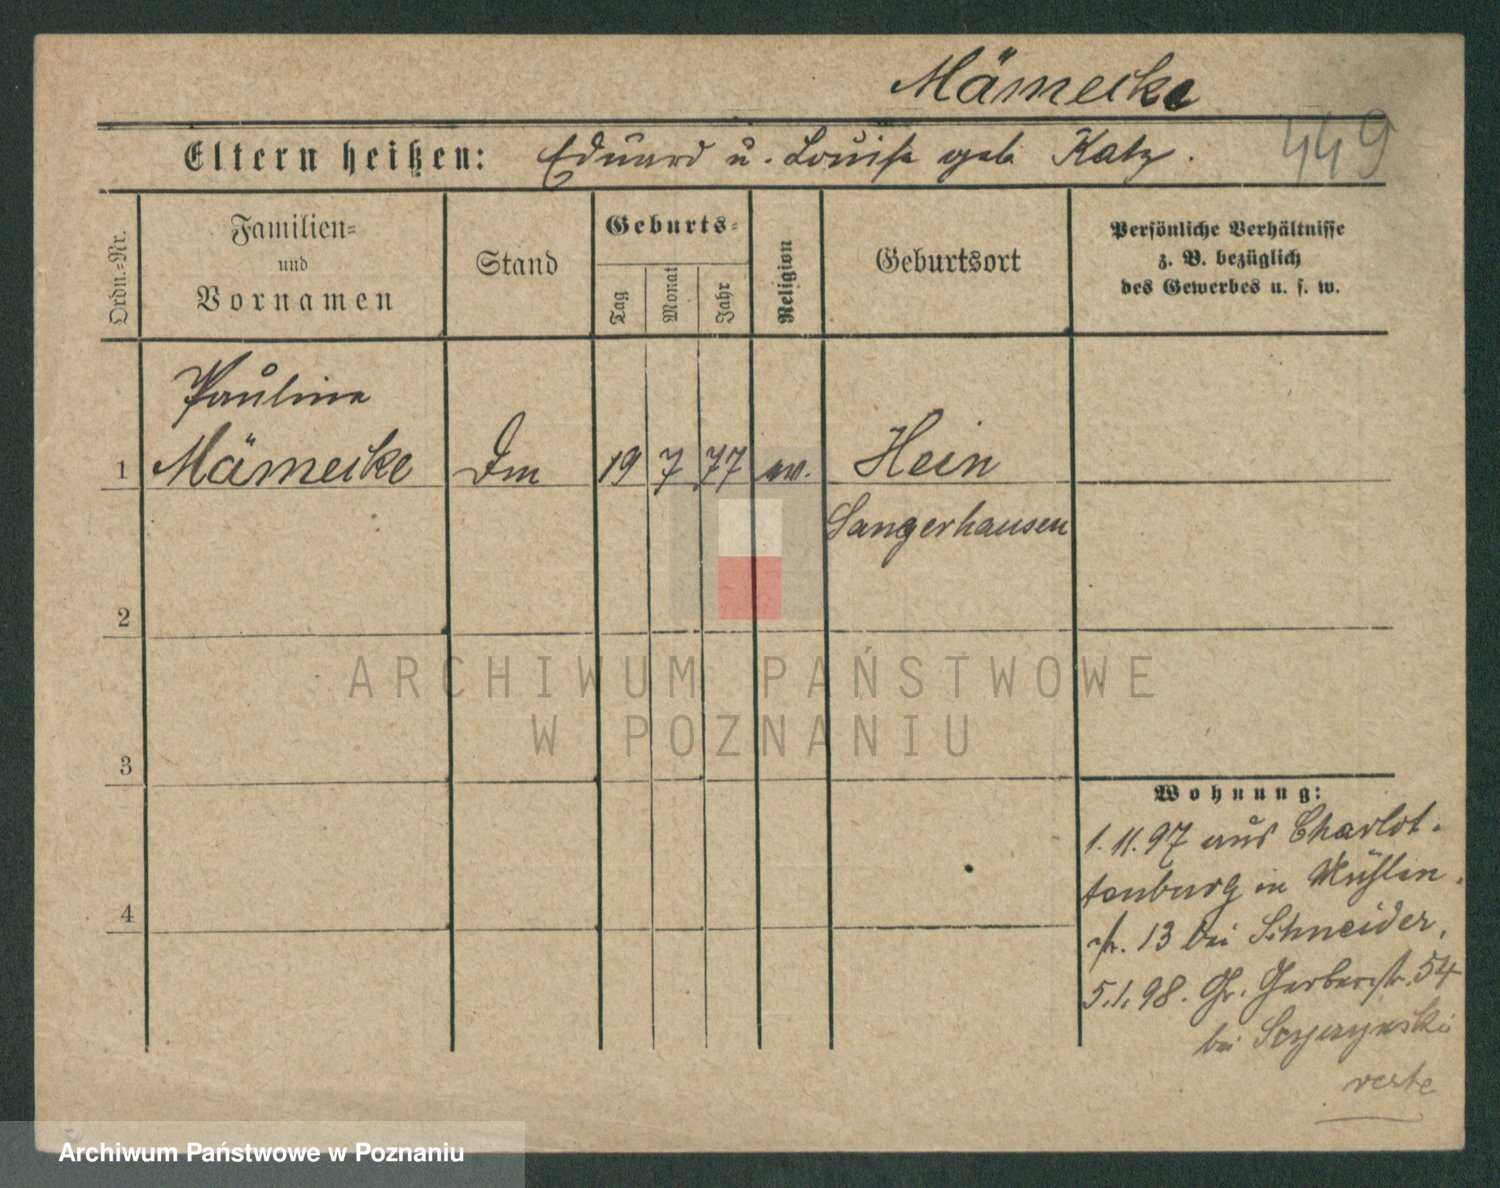 Mämecke
Eltern heißen: Eduard u. Louise geb Katz.
449
Ordn.=Nr.
Familien=
und
Vornamen
Stand
Geburts=
Tag
Monat
Jahr
Religion
Geburtsort
Persönliche Verhältnisse
z. B. bezüglich
des Gewerbes u. s. w.
Pauline
1 Mämecke Dm 19 7 77 ev. Hein
Sangerhausen
2
3
4
Wohnung:
1.11.97 aus Charlot-
tenburg in Mühlen-
str. 13 bei Schneider.
5.1.98. Gr. Gerberstr. 54
bei
verte
ARCHIWUM PAŃSTWOWE
W POZNANIU
Archiwum Państwowe w Poznaniu